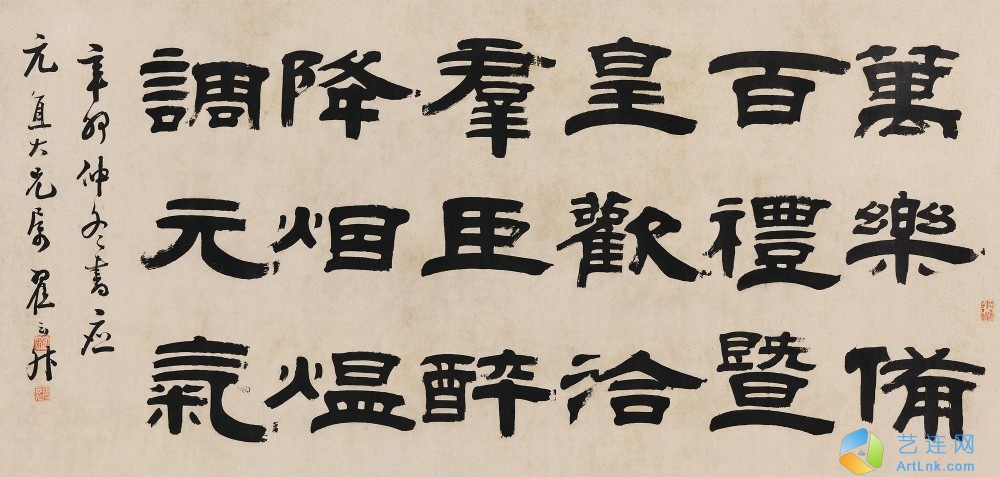 萬樂備
百禮暨
皇歡洽
羣臣醉
降烟熅
調元氣
辛夘仲冬書應
元直大兄属翟云升
艺连网
ArtLnk.com